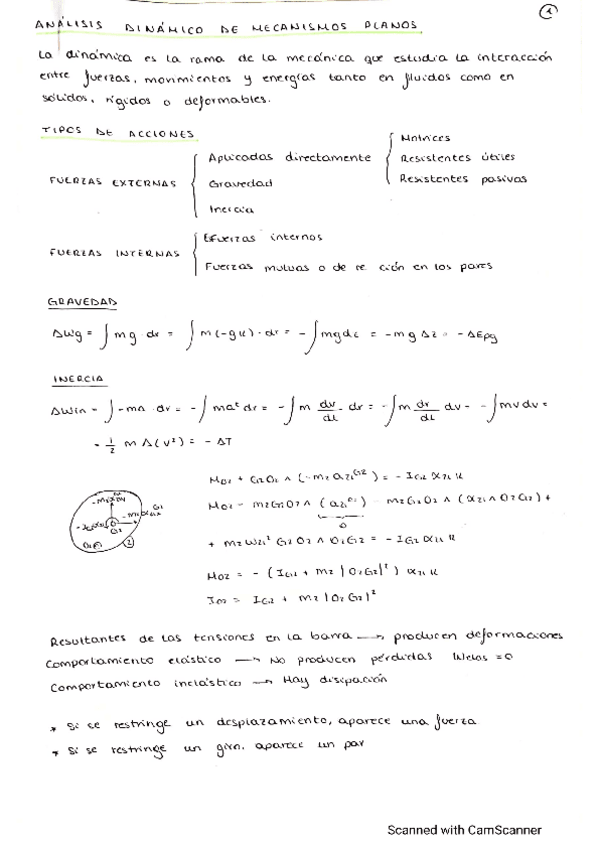 1
ANÁLISIS DINÁMICO DE MECANISMOS PLANOS
La dinámica es la rama de la mecánica que estudia la interacción
entre fuerzas, movimientos y energías tanto en fluidos como en
sólidos, rígidos o deformables.
TIPOS DE ACCIONES
FUERZAS EXTERNAS
Aplicadas directamente
Gravedad
Inercia
Motrices
Resistentes útiles
Resistentes pasivas
FUERZAS INTERNAS
Esfuerzos internos
Fuerzas mutuas o de re cción en los pares
GRAVEDAD
ΔWg = ∫ mg dr = ∫ m(-gk)·dr = -∫ mgdz = -mg Δz = -ΔEpg
INERCIA
ΔWin = ∫ -ma · dr = -∫ ma^t dr = -∫ m dv/dt · dr = -∫ m dr/dt dv = -∫ mv dv =
= -1/2 m Δ(v²) = -ΔT
M02 + G2O2 ∧ (-m2 a21^G2) = -IG2 α21 k
M02 = - (IG2 + m2 |O2G2|²) α21 k
I02 = IG2 + m2 |O2G2|²
Resultantes de las tensiones en la barra → producen deformaciones
Comportamiento elástico → No producen pérdidas Welas = 0
Comportamiento inelástico → Hay disipación
* Si se restringe un desplazamiento, aparece una fuerza
* Si se restringe un giro, aparece un par
Scanned with CamScanner